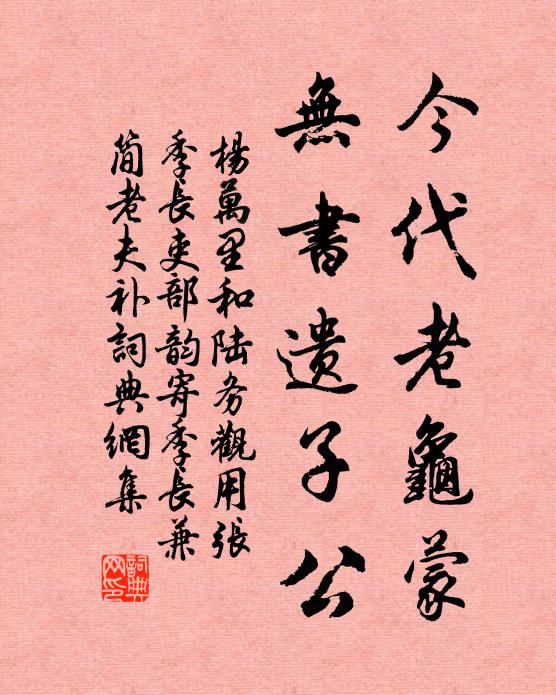 今代老龜蒙
無書遺子公
楊萬里和陆务觀用張
季長吏部韵寄季長兼
简老夫补詞典網集
詞典网印